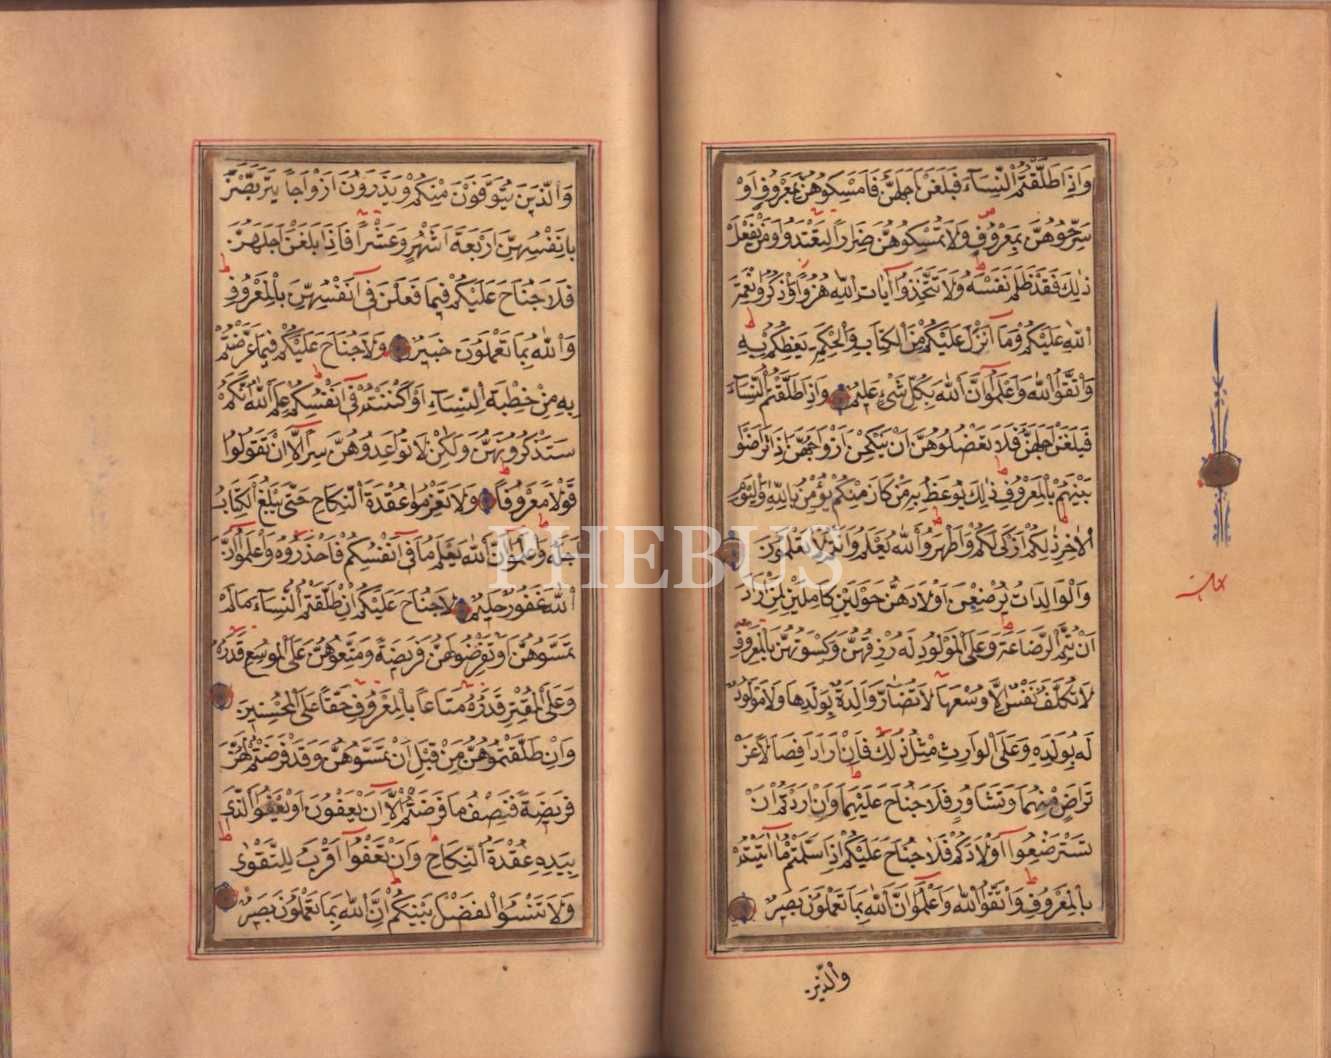 وَاِذَا طَلَّقْتُمُ النِّسَآءَ فَبَلَغْنَ اَجَلَهُنَّ فَاَمْسِكُوهُنَّ بِمَعْرُوفٍ اَوْ
سَرِّحُوهُنَّ بِمَعْرُوفٍ وَلَا تُمْسِكُوهُنَّ ضِرَارًا لِتَعْتَدُوا وَمَنْ يَفْعَلْ
ذٰلِكَ فَقَدْ ظَلَمَ نَفْسَهُ وَلَا تَتَّخِذُوا آيَاتِ اللّٰهِ هُزُوًا وَاذْكُرُوا نِعْمَةَ
اللّٰهِ عَلَيْكُمْ وَمَا اَنْزَلَ عَلَيْكُمْ مِنَ الْكِتَابِ وَالْحِكْمَةِ يَعِظُكُمْ بِهِ
وَاتَّقُوا اللّٰهَ وَاعْلَمُوا اَنَّ اللّٰهَ بِكُلِّ شَيْءٍ عَلِيمٌ وَاِذَا طَلَّقْتُمُ النِّسَآءَ
فَبَلَغْنَ اَجَلَهُنَّ فَلَا تَعْضُلُوهُنَّ اَنْ يَنْكِحْنَ اَزْوَاجَهُنَّ اِذَا تَرَاضَوْا
بَيْنَهُمْ بِالْمَعْرُوفِ ذٰلِكَ يُوعَظُ بِهِ مَنْ كَانَ مِنْكُمْ يُؤْمِنُ بِاللّٰهِ وَالْيَوْمِ
الْاٰخِرِ ذٰلِكُمْ اَزْكٰى لَكُمْ وَاَطْهَرُ وَاللّٰهُ يَعْلَمُ وَاَنْتُمْ لَا تَعْلَمُونَ
وَالْوَالِدَاتُ يُرْضِعْنَ اَوْلَادَهُنَّ حَوْلَيْنِ كَامِلَيْنِ لِمَنْ اَرَادَ
اَنْ يُتِمَّ الرَّضَاعَةَ وَعَلَى الْمَوْلُودِ لَهُ رِزْقُهُنَّ وَكِسْوَتُهُنَّ بِالْمَعْرُوفِ
لَا تُكَلَّفُ نَفْسٌ اِلَّا وُسْعَهَا لَا تُضَآرَّ وَالِدَةٌ بِوَلَدِهَا وَلَا مَوْلُودٌ
لَهُ بِوَلَدِهِ وَعَلَى الْوَارِثِ مِثْلُ ذٰلِكَ فَاِنْ اَرَادَا فِصَالًا عَنْ
تَرَاضٍ مِنْهُمَا وَتَشَاوُرٍ فَلَا جُنَاحَ عَلَيْهِمَا وَاِنْ اَرَدْتُمْ اَنْ
تَسْتَرْضِعُوا اَوْلَادَكُمْ فَلَا جُنَاحَ عَلَيْكُمْ اِذَا سَلَّمْتُمْ مَا اٰتَيْتُمْ
بِالْمَعْرُوفِ وَاتَّقُوا اللّٰهَ وَاعْلَمُوا اَنَّ اللّٰهَ بِمَا تَعْمَلُونَ بَصِيرٌ
وَالَّذِينَ
وَالَّذِينَ يُتَوَفَّوْنَ مِنْكُمْ وَيَذَرُونَ اَزْوَاجًا يَتَرَبَّصْنَ
بِاَنْفُسِهِنَّ اَرْبَعَةَ اَشْهُرٍ وَعَشْرًا فَاِذَا بَلَغْنَ اَجَلَهُنَّ
فَلَا جُنَاحَ عَلَيْكُمْ فِيمَا فَعَلْنَ فِى اَنْفُسِهِنَّ بِالْمَعْرُوفِ
وَاللّٰهُ بِمَا تَعْمَلُونَ خَبِيرٌ وَلَا جُنَاحَ عَلَيْكُمْ فِيمَا عَرَّضْتُمْ
بِهِ مِنْ خِطْبَةِ النِّسَآءِ اَوْ اَكْنَنْتُمْ فِى اَنْفُسِكُمْ عَلِمَ اللّٰهُ اَنَّكُمْ
سَتَذْكُرُونَهُنَّ وَلٰكِنْ لَا تُوَاعِدُوهُنَّ سِرًّا اِلَّا اَنْ تَقُولُوا
قَوْلًا مَعْرُوفًا وَلَا تَعْزِمُوا عُقْدَةَ النِّكَاحِ حَتّٰى يَبْلُغَ الْكِتَابُ
اَجَلَهُ وَاعْلَمُوا اَنَّ اللّٰهَ يَعْلَمُ مَا فِى اَنْفُسِكُمْ فَاحْذَرُوهُ وَاعْلَمُوا اَنَّ
اللّٰهَ غَفُورٌ حَلِيمٌ لَا جُنَاحَ عَلَيْكُمْ اِنْ طَلَّقْتُمُ النِّسَآءَ مَا لَمْ
تَمَسُّوهُنَّ اَوْ تَفْرِضُوا لَهُنَّ فَرِيضَةً وَمَتِّعُوهُنَّ عَلَى الْمُوسِعِ قَدَرُهُ
وَعَلَى الْمُقْتِرِ قَدَرُهُ مَتَاعًا بِالْمَعْرُوفِ حَقًّا عَلَى الْمُحْسِنِينَ
وَاِنْ طَلَّقْتُمُوهُنَّ مِنْ قَبْلِ اَنْ تَمَسُّوهُنَّ وَقَدْ فَرَضْتُمْ لَهُنَّ
فَرِيضَةً فَنِصْفُ مَا فَرَضْتُمْ اِلَّا اَنْ يَعْفُونَ اَوْ يَعْفُوَا الَّذِى
بِيَدِهِ عُقْدَةُ النِّكَاحِ وَاَنْ تَعْفُوا اَقْرَبُ لِلتَّقْوٰى
وَلَا تَنْسَوُا الْفَضْلَ بَيْنَكُمْ اِنَّ اللّٰهَ بِمَا تَعْمَلُونَ بَصِيرٌ
PHEBUS